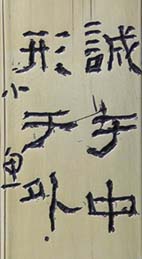 誠于中
形于外
小魚